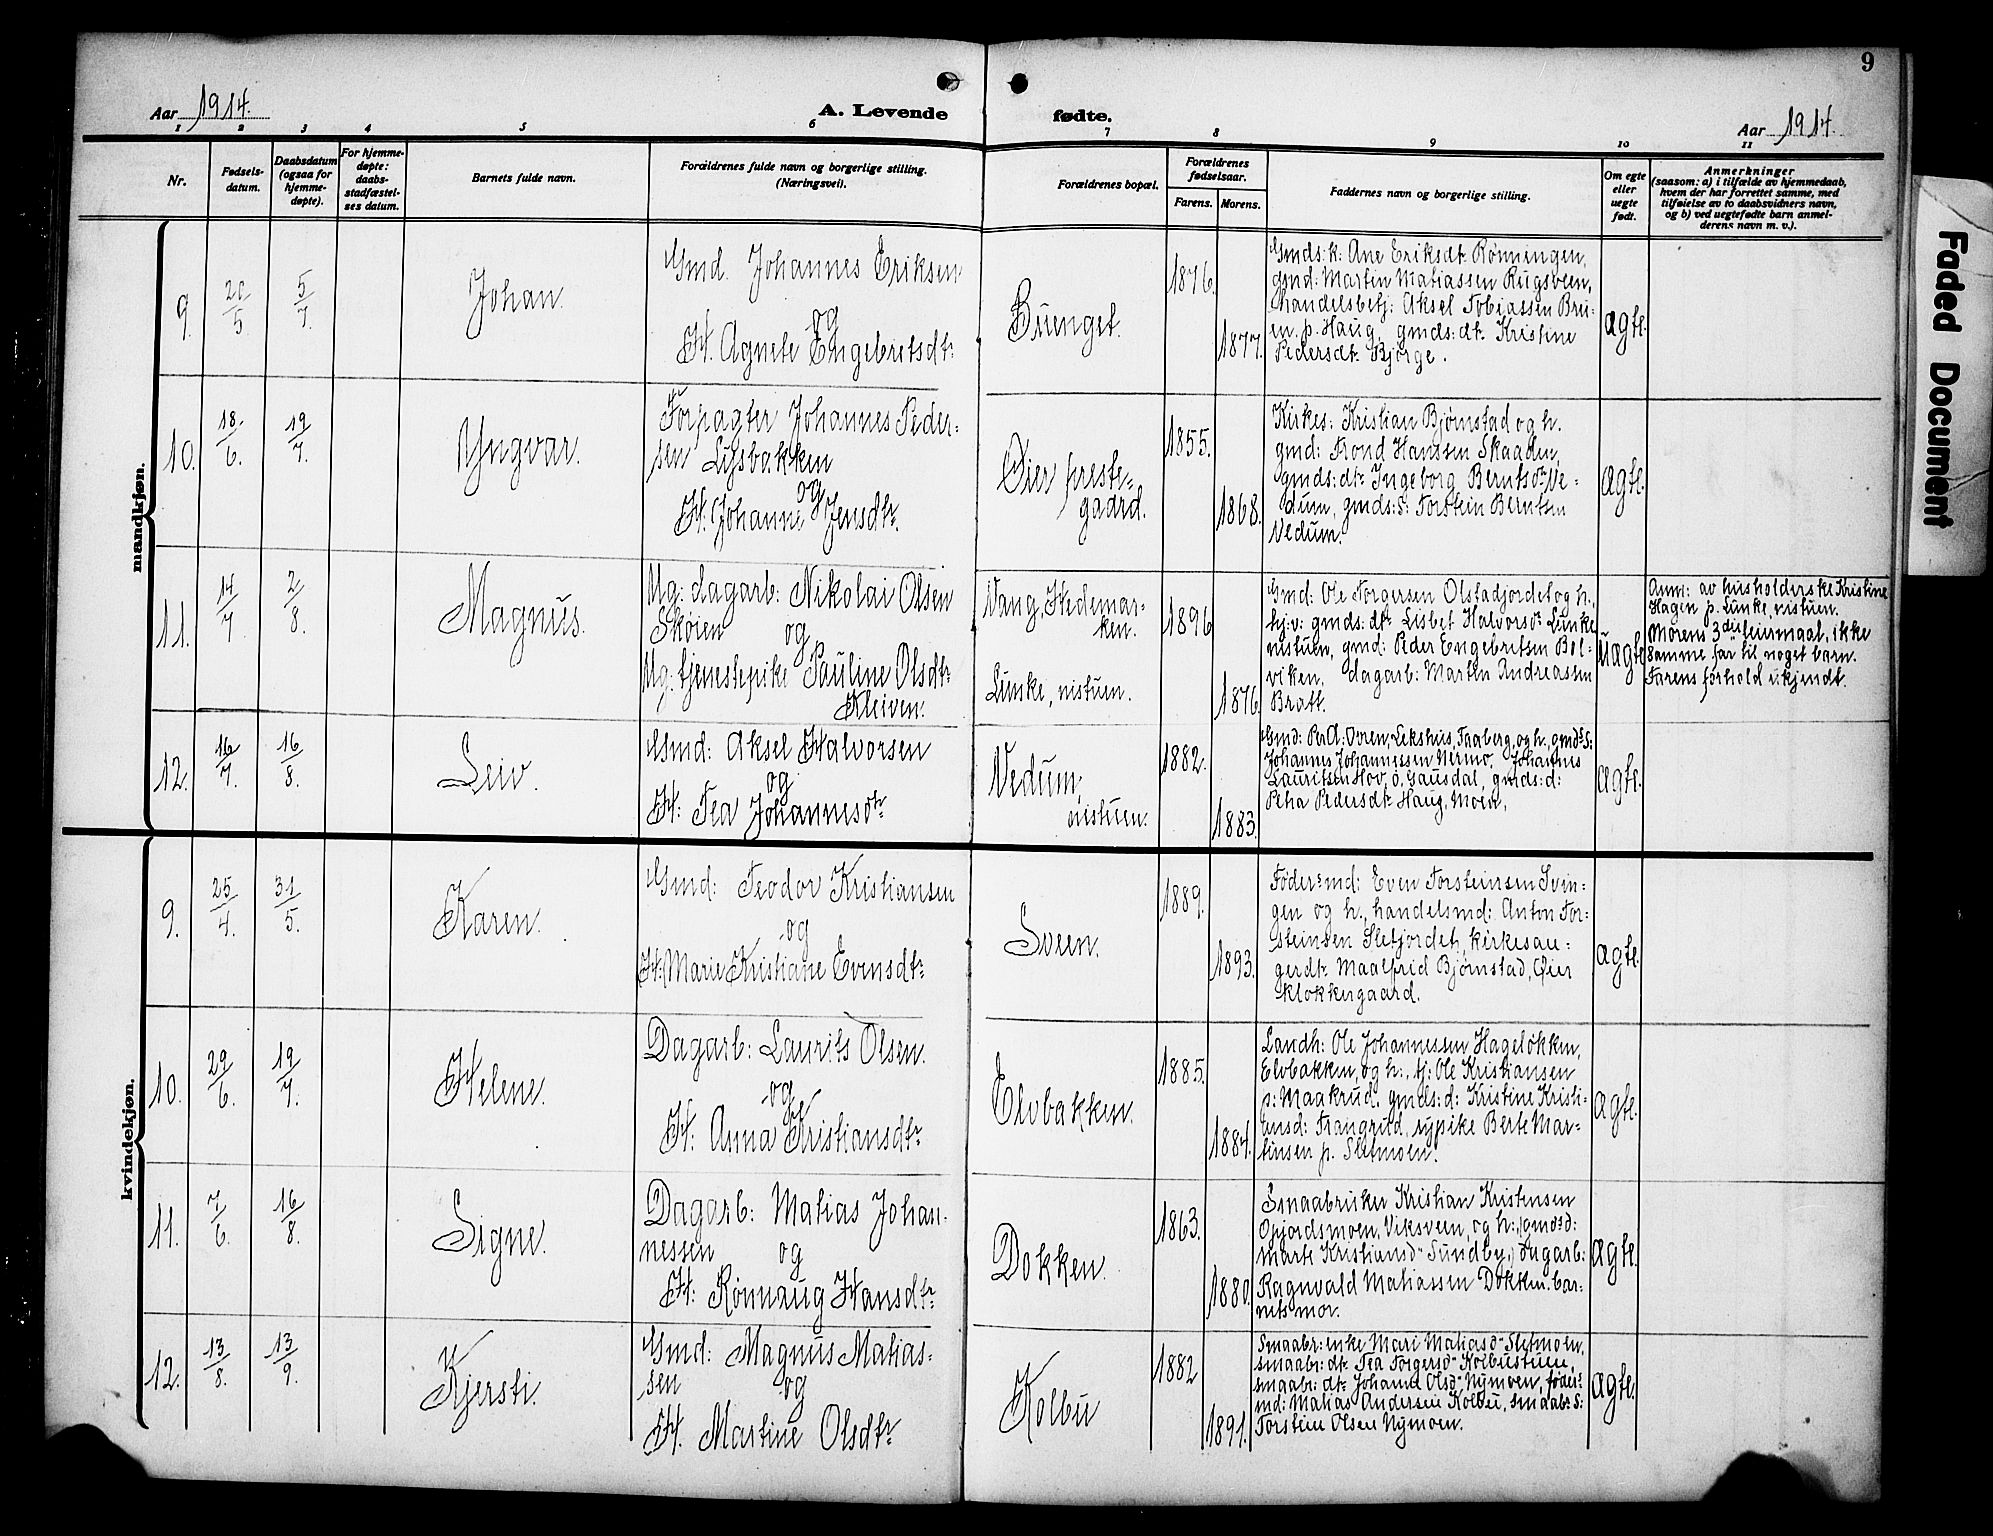 9
Aar 1914.
A. Levende fødte.
Aar 1914.
1 2 3 4 5 6 7 8 9 10 11
Nr.
Fødsels-
datum.
Daabsdatum
(ogsaa for
hjemme-
døpte).
For hjemme-
døpte:
daabs-
stadfæstel-
ses datum.
Barnets fulde navn.
Forældrenes fulde navn og borgerlige stilling.
(Næringsvei).
Forældrenes bopæl.
Forældrenes
fødselsaar.
Farens. Morens.
Faddernes navn og borgerlige stilling.
Om egte
eller
uegte
født.
Anmerkninger
(saasom: a) i tilfælde av hjemmedaab,
hvem der har forrettet samme, med
tilføielse av to daabsvidners navn,
og b) ved uegtefødte barn anmel-
derens navn m. v.).
mandkjøn.
9.
20/5
5/7.
Johan.
Gmd. Johannes Eriksen
og
H. Agnete Engebretsdtr
Buenget.
1876.
1877.
Gmds: k: Ane Eriksdt. Rønningen,
gmd: Martin Matiassen Rugsveen,
handelsbetj: Aksel Tobiassen Bru-
en p. Haug, gmds: dtr Kristine
Pedersdtr Bjørge.
ægte.
10.
18./6.
19/7.
Yngvar.
Forpagter Johannes Peder-
sen Lysbakken
og
H. Johanne Jensdtr.
Øier preste-
gaard.
1855.
1868.
Kirkes: Kristian Bjørnstad og h.
gmd: Trond Hansen Skaaden,
gmds: dtr Ingeborg Berntsdtr Ve-
dum, gmds: s: Torstein Berntsen
Vedum.
ægte.
11.
14/7.
2/8.
Magnus.
Ug: dagarb: Nikolai Olsen
Skøien og
Ug. tjenestepike Pauline Olsdtr
Kleiven.
Vang, Hedemar-
ken.
Lunke, nistuen.
1896
1876.
Gmd: Ole Torgersen Olstadjordet og h.,
hj: v: gmds: dtr Lisbet Halvorsdtr Lunke
nistuen, gmd: Peder Engebretsen Bol-
viken, dagarb: Martin Andreassen
Bratt.
uægte
Anm: av husholderske Kristine
Hagen p. Lunke, nistuen.
Morens 3die leiermaal, ikke
samme far til noget barn.
Farens forhold ukjendt.
12.
16/7.
16/8.
Leiv.
Gmd: Aksel Halvorsen
og
H: Tea Johannesdtr
Vedum,
nistuen.
1882.
1883.
Gmd: Per A: Ovren, Lekshus, Faaberg, og h., gmds s:
Johannes Johannessen Nermo, Johannes
Lauritsen Hov, Ø. Gausdal, gmds: d:
Petra Pedersdtr Haug, Moen,
ægte.
kvindekjøn.
9.
25/4.
31/5.
Karen.
Gmd: Teodor Kristiansen
og
H: Marie Kristiane Evensdtr
Sveen.
1889.
1893.
Føderaadsmd: Even Torsteinsen Svin-
gen og h., handelsmd: Anton Tor-
steinsen Sletjordet, kirkesan-
gerdtr Maalfrid Bjørnstad, Øier
klokkergaard.
ægte.
10.
29/6.
19/7.
Helene.
Dagarb: Laurits Olsen.
og
H: Anna Kristiansdtr
Elvbakken.
1885.
1884.
Landh: Ole Johannessen Hageløkken,
Elvbakken, og h., tj: Ole Kristiansen
p: Maakrud, gmds: d: Kristine Kristi-
ansd: Trangrud, sypike Berte Mar-
tinsen p. Sletmoen.
ægte.
11.
7/6.
16/8.
Signe.
Dagarb: Matias Johan-
nessen og
H: Rønnaug Hansdtr
Dokken.
1863.
1880.
Smaabruker Kristian Kristensen
Gjordsmoen, Viksveen, og h., (gmds d:
Marte Kristiansd. Sundby,) dagarb:
Ragnvald Matiassen Dokken. bar-
nets mor.
ægte.
12.
13/8.
13/9.
Kjersti.
Gmd: Magnus Matias-
sen og
H. Martine Olsdtr
Kolbu
1882
1891.
Smaabr: enke Mari Matiasd. Sletmoen,
smaabr: dt. Tea Torgersd. Kolbustuen,
smaabr: dtr Johanne Olsd. Nymoen, føder:
md: Matias Andersen Kolbu, smaabr: s:
Torstein Olsen Nymoen.
ægte.
Faded Document